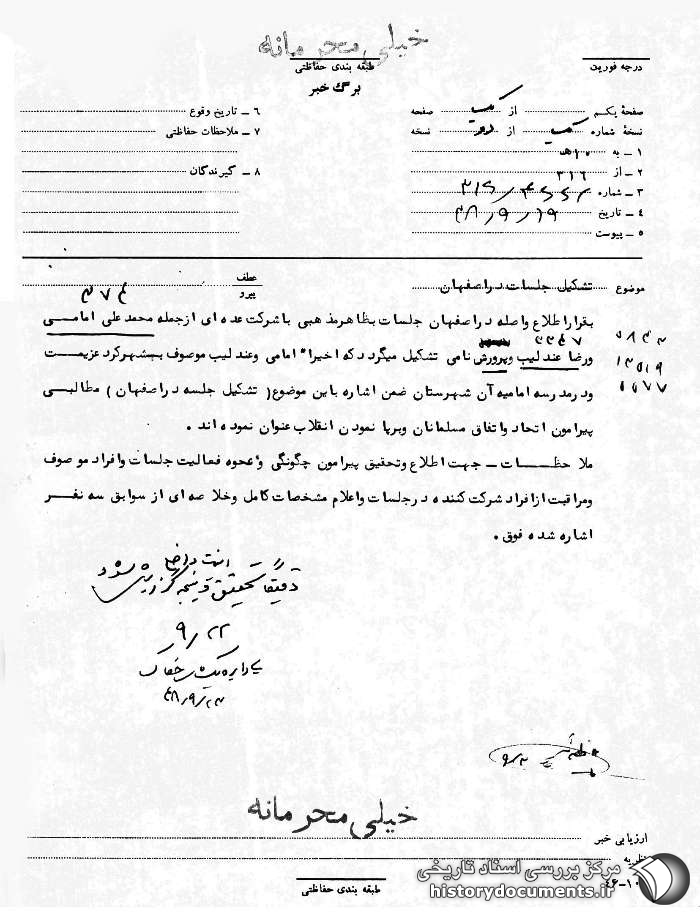 خیلی محرمانه
درجه فوریت
طبقه بندی حفاظتی
برگ خبر
صفحهٔ یکم از یک صفحه
۶ ـ تاریخ وقوع
نسخهٔ شماره یک از دو نسخه
۷ ـ ملاحظات حفاظتی
۱ ـ به ۱۰هـ
۲ ـ از ۳۱۶
۸ ـ گیرندگان
۳ ـ شماره
۴ ـ تاریخ ۴۸/۹/۱۹
۵ ـ پیوست
موضوع تشکیل جلسات در اصفهان
عطف
پیرو
بقرار اطلاع واصله در اصفهان جلسات بظاهر مذهبی با شرکت عده ای از جمله محمد علی امامی
ورضا عندلیب وپرورش نامی تشکیل میگردد که اخیراً امامی وعندلیب موصوف بشهرکرد عزیمت
ودر مدرسه امامیه آن شهرستان ضمن اشاره باین موضوع (تشکیل جلسه در اصفهان) مطالبی
پیرامون اتحاد واتفاق مسلمانان وبرپا نمودن انقلاب عنوان نموده اند .
ملاحظات ـ جهت اطلاع وتحقیق پیرامون چگونگی ونحوه فعالیت جلسات وافراد موصوف
ومراقبت از افراد شرکت کننده در جلسات واعلام مشخصات کامل وخلاصه ای از سوابق سه نفر
اشاره شده فوق .
دقیقاً تحقیق و نتیجه گزارش شود
۹/۲۲
۴۸/۹/۲۳
خیلی محرمانه
ارزیابی خبر
نظریه
طبقه بندی حفاظتی
مرکز بررسی اسناد تاریخی
historydocuments.ir